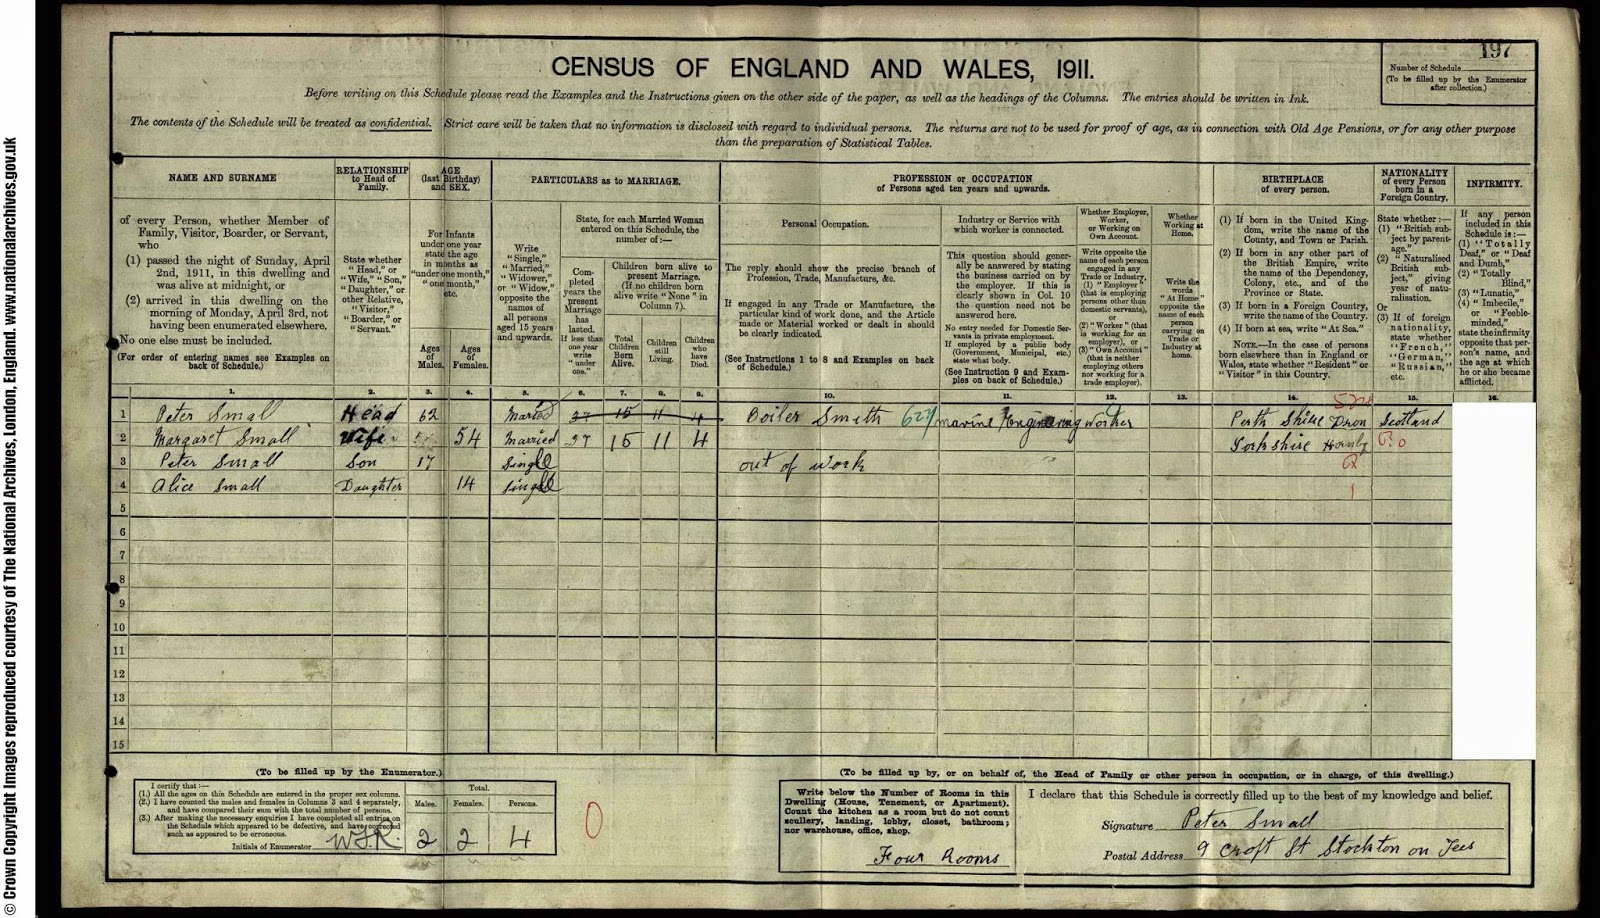 197
Number of Schedule
(To be filled up by the Enumerator
after collection.)
CENSUS OF ENGLAND AND WALES, 1911.
Before writing on this Schedule please read the Examples and the Instructions given on the other side of the paper, as well as the headings of the Columns. The entries should be written in Ink.
The contents of the Schedule will be treated as confidential. Strict care will be taken that no information is disclosed with regard to individual persons. The returns are not to be used for proof of age, as in connection with Old Age Pensions, or for any other purpose
than the preparation of Statistical Tables.
NAME AND SURNAME
of every Person, whether Member of
Family, Visitor, Boarder, or Servant,
who
(1) passed the night of Sunday, April
2nd, 1911, in this dwelling and
was alive at midnight, or
(2) arrived in this dwelling on the
morning of Monday, April 3rd, not
having been enumerated elsewhere.
No one else must be included.
(For order of entering names see Examples on
back of Schedule.)
RELATIONSHIP
to Head of
Family.
State whether
"Head," or
"Wife," "Son,"
"Daughter," or
other Relative,
"Visitor,"
"Boarder," or
"Servant."
AGE
(last Birthday)
and SEX.
For Infants
under one year
state the age
in months as
"under one month,"
"one month,"
etc.
Ages
of
Males.
Ages
of
Females.
PARTICULARS as to MARRIAGE.
Write
"Single,"
"Married,"
"Widower,"
or "Widow,"
opposite the
names of
all persons
aged 15 years
and upwards.
State, for each Married Woman
entered on this Schedule, the
number of:—
Com-
pleted
years the
present
Marriage
has
lasted.
If less than
one year
write
"under
one."
Children born alive to
present Marriage.
(If no children born
alive write "None" in
Column 7).
Total
Children
Born
Alive.
Children
still
Living.
Children
who
have
Died.
PROFESSION or OCCUPATION
of Persons aged ten years and upwards.
Personal Occupation.
The reply should show the precise branch of
Profession, Trade, Manufacture, &c.
If engaged in any Trade or Manufacture, the
particular kind of work done, and the Article
made or Material worked or dealt in should
be clearly indicated.
(See Instructions 1 to 8 and Examples on back
of Schedule.)
Industry or Service with
which worker is connected.
This question should gener-
ally be answered by stating
the business carried on by
the employer. If this is
clearly shown in Col. 10
the question need not be
answered here.
No entry needed for Domestic Ser-
vants in private employment.
If employed by a public body
(Government, Municipal, etc.)
state what body.
(See Instruction 9 and Exam-
ples on back of Schedule.)
Whether Employer,
Worker,
or Working on
Own Account.
Write opposite the
name of each person
engaged in any
Trade or Industry,
(1) "Employer"
(that is employing
persons other than
domestic servants),
or
(2) "Worker" (that
is working for an
employer), or
(3) "Own Account"
(that is neither
employing others
nor working for a
trade employer).
Whether
Working at
Home.
Write the
words
"At Home"
opposite the
name of each
person
carrying on
Trade or
Industry at
home.
BIRTHPLACE
of every person.
(1) If born in the United King-
dom, write the name of the
County, and Town or Parish.
(2) If born in any other part of
the British Empire, write
the name of the Dependency,
Colony, etc., and of the
Province or State.
(3) If born in a Foreign Country,
write the name of the Country.
(4) If born at sea, write "At Sea."
NOTE.—In the case of persons
born elsewhere than in England or
Wales, state whether "Resident" or
"Visitor" in this Country.
NATIONALITY
of every Person
born in a
Foreign Country.
State whether:—
(1) "British sub-
ject by parent-
age,"
(2) "Naturalised
British sub-
ject," giving
year of natu-
ralisation.
Or
(3) If of foreign
nationality,
state whether
"French,"
"German,"
"Russian,"
etc.
INFIRMITY.
If any person
included in this
Schedule is:—
(1) "Totally
Deaf," or "Deaf
and Dumb,"
(2) "Totally
Blind,"
(3) "Lunatic,"
(4) "Imbecile,"
or "Feeble-
minded,"
state the infirmity
opposite that per-
son's name, and
the age at which
he or she became
afflicted.
1. 2. 3. 4. 5. 6. 7. 8. 9. 10. 11. 12. 13. 14. 15. 16.
1 Peter Small Head 62 Married 37 15 11 4 Boiler Smith marine Engineering Worker Perth Shire Dron Scotland
2 Margaret Small Wife 54 Married 37 15 11 4 Yorkshire
3 Peter Small Son 17 Single out of work
4 Alice Small Daughter 14 Single
5
6
7
8
9
10
11
12
13
14
15
(To be filled up by the Enumerator.)
I certify that:—
(1.) All the ages on this Schedule are entered in the proper sex columns.
(2.) I have counted the males and females in Columns 3 and 4 separately,
and have compared their sum with the total number of persons.
(3.) After making the necessary enquiries I have completed all entries on
the Schedule which appeared to be defective, and have corrected
such as appeared to be erroneous.
Initials of Enumerator
Total.
Males. Females. Persons.
2 2 4
0
(To be filled up by, or on behalf of, the Head of Family or other person in occupation, or in charge, of this dwelling.)
Write below the Number of Rooms in this
Dwelling (House, Tenement, or Apartment).
Count the kitchen as a room but do not count
scullery, landing, lobby, closet, bathroom;
nor warehouse, office, shop.
Four Rooms
I declare that this Schedule is correctly filled up to the best of my knowledge and belief.
Signature Peter Small
Postal Address 9 Croft St Stockton on Tees
© Crown Copyright Images reproduced courtesy of The National Archives, London, England. www.nationalarchives.gov.uk